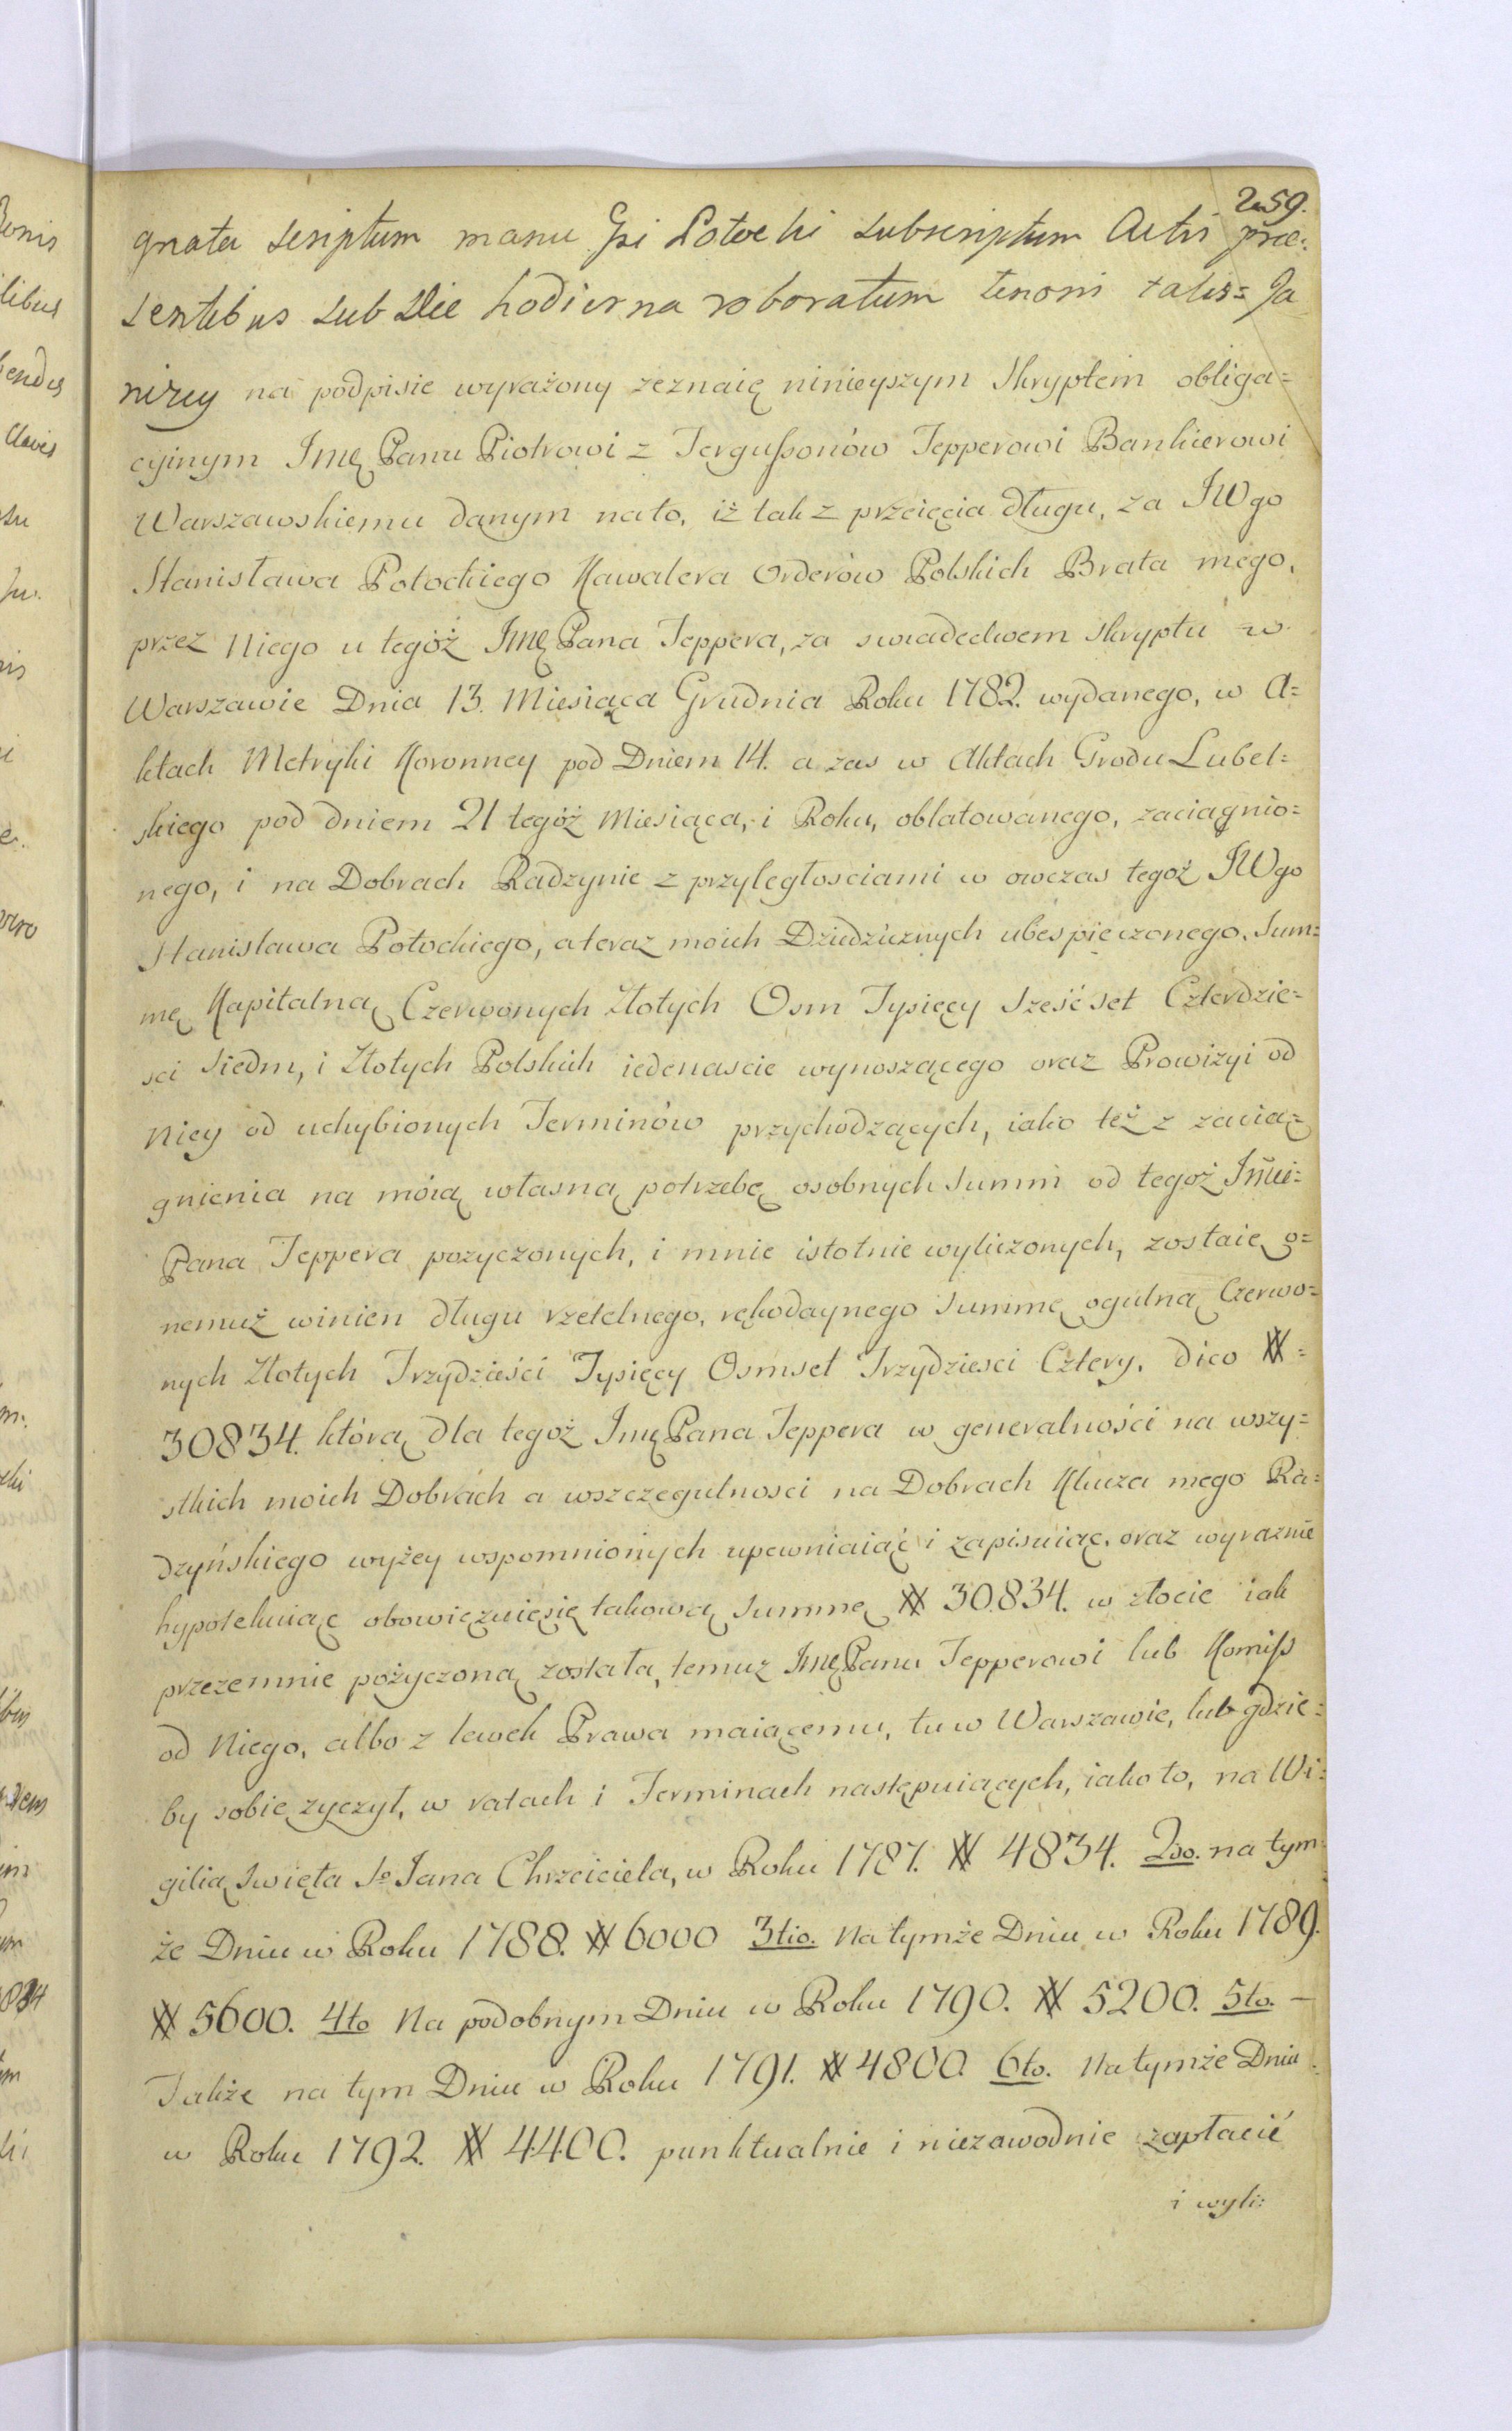 259.
gnata scriptum manu Gsi Potocki subscriptum Actis prae:
sentibus sub Die hodierna roboratum tenoris talis = Ja
niżey na podpisie wyrażony zeznaię ninieyszym Skryptem obliga=
cyinym Jmę Panu Piotrowi z Fergußonów Tepperowi Bankierowi
Warszawskiemu danym na to, iż tak z przeięcia długu, za JWgo
Stanisława Potockiego Kawalera Orderów Polskich Brata mego,
przez Niego u tegoż Jmę Pana Teppera, za swiadectwem skryptu w
Warszawie Dnia 13. Miesiąca Grudnia Roku 1782. wydanego, w A=
ktach Metryki Koronney pod Dniem 14. a zas w Aktach Grodu Lubel=
skiego pod dniem 21 tegóż Miesiąca, i Roku, oblatowanego, zaciągnio=
nego, i na Dobrach Radzynie z przyległosciami w owczas tegoż JWgo
Stanisława Potockiego, a teraz moich Dziedzicznych ubespieczonego. Sum=
mę Kapitalną Czerwonych Złotych Osm Tysięcy Sześćset Czterdzie=
sci Siedm, i Złotych Polskich iedenascie wynoszącego oraz Prowizyi od
Niey od uchybionych Terminów przychodzących, iako też z zacią=
gnienia na móią własną potrzebę osobnych Summ od tegoż Jmci=
Pana Teppera pozyczonych, i mnie istotnie wyliczonych, zostaię o=
nemuż winien długu rzetelnego, rękodaynego Summę ogulną Czerwo=
nych Złotych Trzydzieści Tysięcy Osmset Trzydziesci Cztery. dico #=
30834. którą dla tegoż Jmę Pana Teppera w generalności na wszy=
stkich moich Dobrach a wszczegulnosci na Dobrach Klucza mego Ra=
dzyńskiego wyżey wspomnionych upewniaiąć i zapisuiąc, oraz wyraznie
hypotekuiąc obowięzuięsię takową Summę # 30.834. w złocie iak
przezemnie pożyczoną została, temuz Jmę Panu Tepperowi lub Komiß
od Niego, albo z lewek Prawa maiącemu, tu w Warszawie, lub gdzie=
by sobie zyczył, w ratach i Terminach następuiących, iako to, na Wi=
gilią Swięta So Jana Chrzciciela, w Roku 1787. # 4834. 2do. na tym=
że Dniu w Roku 1788. # 6000 3tio. Na tymże Dniu w Roku 1789.
# 5600. 4to Na podobnym Dniu w Roku 1790. # 5200. 5to. —
Takze na tym Dniu w Roku 1791. # 4800. 6to. Na tymże Dniu
w Roku 1792. # 4400. punktualnie i niezawodnie zapłacić
i wyli: